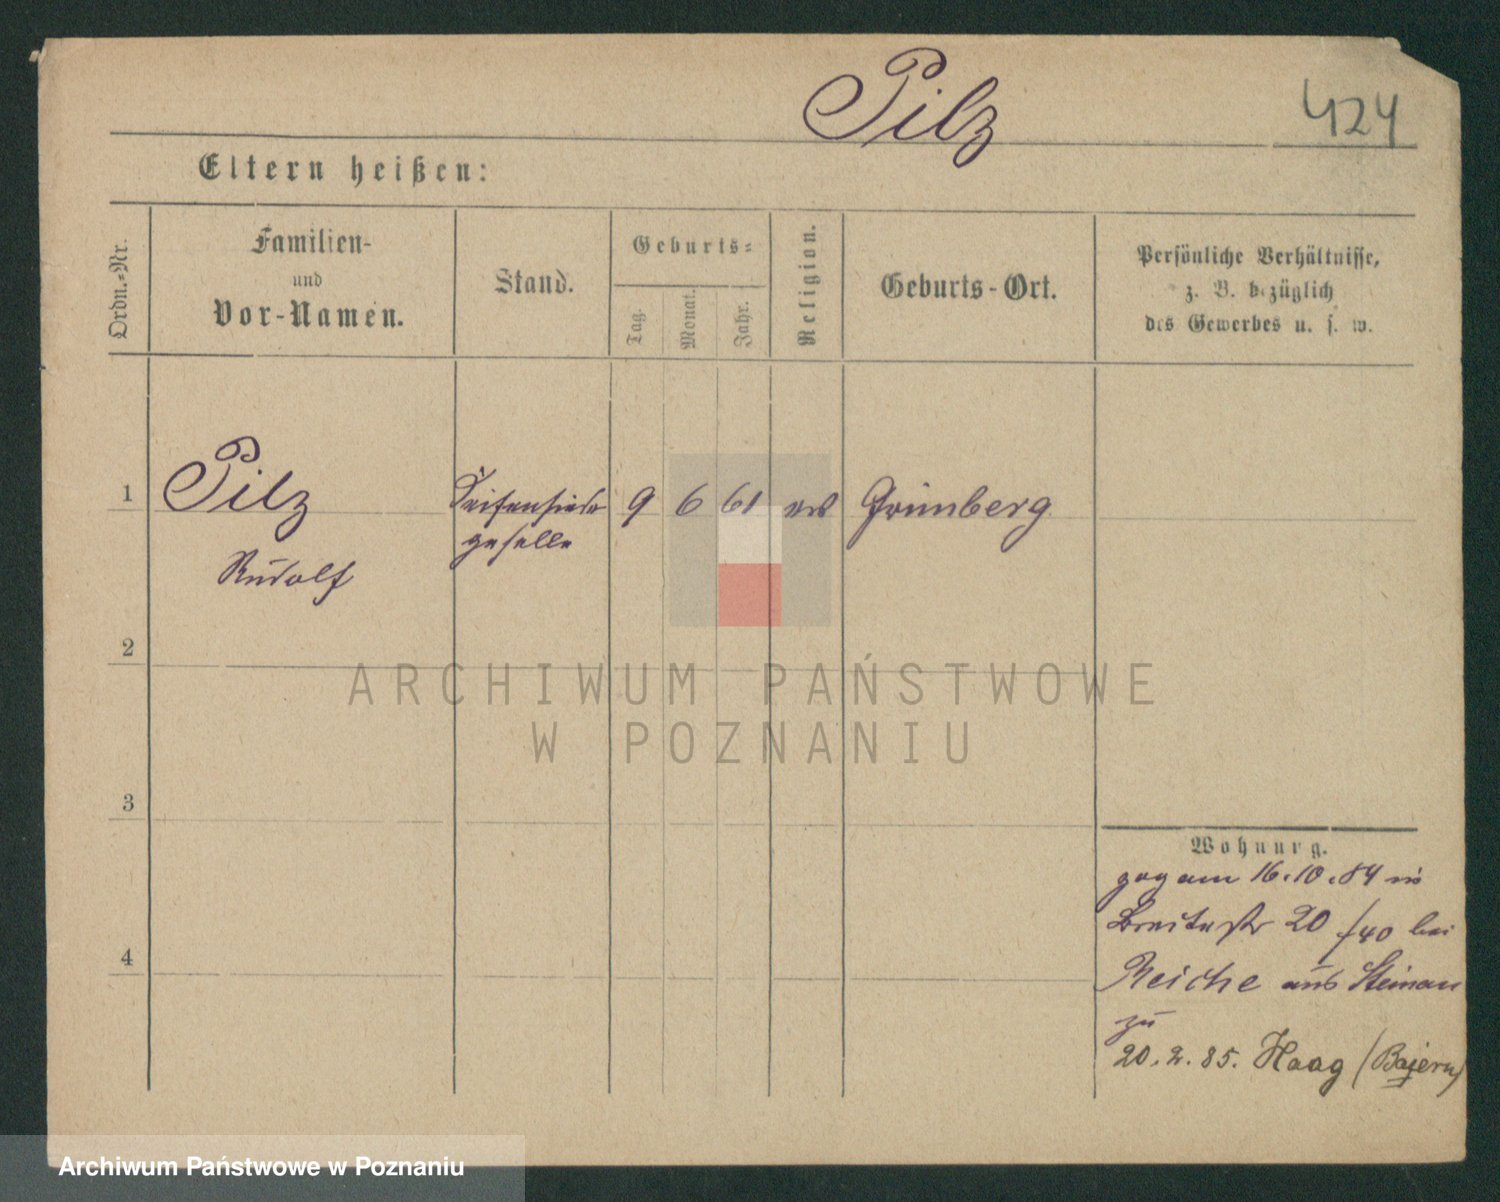 Pilz
424
Eltern heißen:
Ordn.-Nr.
Familien-
und
Vor-Namen.
Stand.
Geburts-
Tag.
Monat.
Jahr.
Religion.
Geburts-Ort.
Persönliche Verhältnisse,
z. B. bezüglich
des Gewerbes u. s. w.
1
Pilz
Rudolf
Seifensieder
geselle
9
6
61
Grünberg
2
3
4
Wohnung.
zog am 16.10.84 in
Breitestr 20 /40 bei
Reiche aus Steinau
zu
20.2.85. Haag (Baiern)
ARCHIWUM PAŃSTWOWE
W POZNANIU
Archiwum Państwowe w Poznaniu